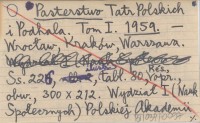 Pasterstwo Tatr Polskich
i Podhala, Tom I. 1959. —
Wrocław, Kraków, Warszawa.
Ss. 226, tabl. 80, opr.,
obw. 300 x 212. Wydział I (Nauk
Społecznych) Polskiej Akademii